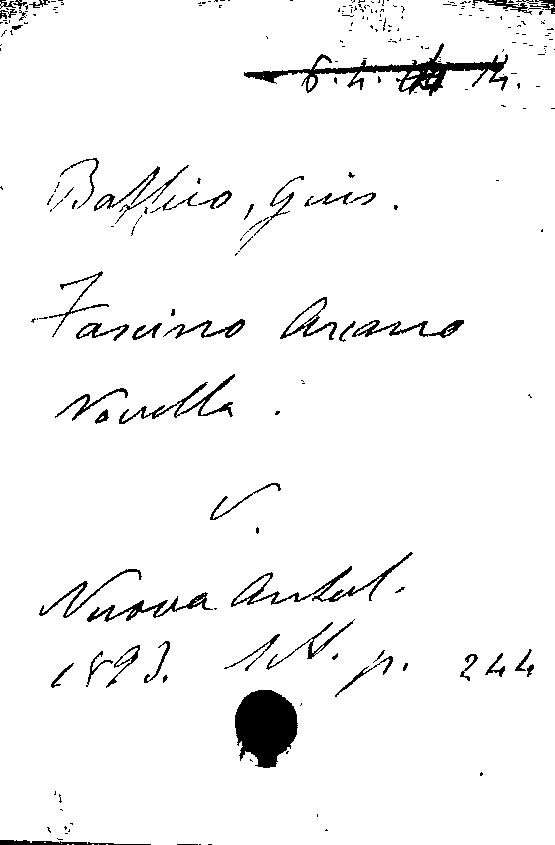 6.4. 14.
Baffico, Gius.
Fascino Arcano
Novella.
V.
Nuova Antol.
1893. p. 244